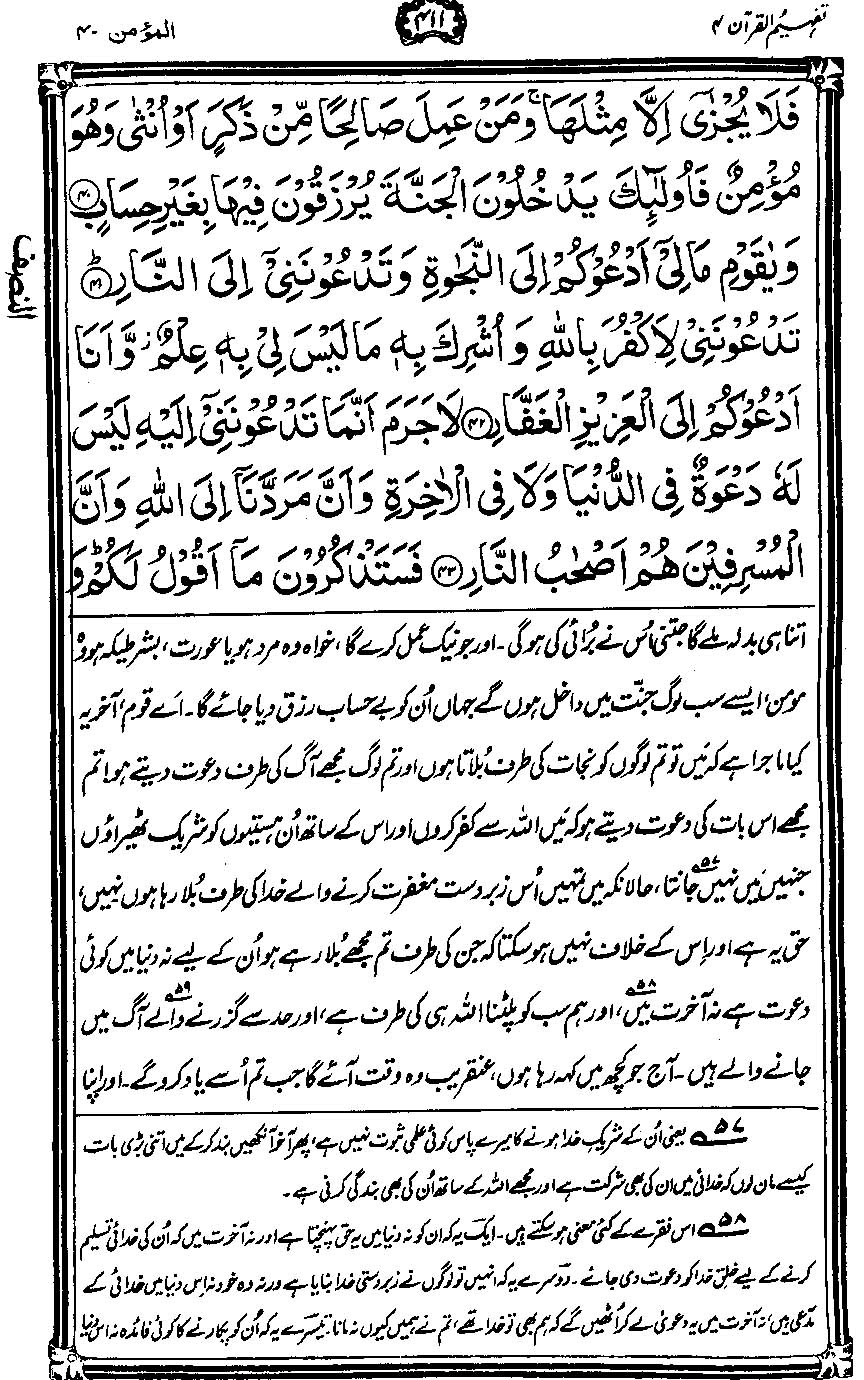 تفہیم القرآن ۴
۴۱۱
المؤمن ۴۰
فَلَا يُجْزٰٓى اِلَّا مِثْلَهَا ۚ وَمَنْ عَمِلَ صَالِحًا مِّنْ ذَكَرٍ اَوْ اُنْثٰى وَهُوَ
مُؤْمِنٌ فَاُولٰٓئِكَ يَدْخُلُوْنَ الْجَنَّةَ يُرْزَقُوْنَ فِيْهَا بِغَيْرِ حِسَابٍ ۴۰
وَيٰقَوْمِ مَالِيْٓ اَدْعُوْكُمْ اِلَى النَّجٰوةِ وَتَدْعُوْنَنِيْٓ اِلَى النَّارِ ؕ ۴۱
النصف
تَدْعُوْنَنِيْ لِاَكْفُرَ بِاللّٰهِ وَاُشْرِكَ بِهٖ مَا لَيْسَ لِيْ بِهٖ عِلْمٌ ؗ وَّاَنَا
اَدْعُوْكُمْ اِلَى الْعَزِيْزِ الْغَفَّارِ ۴۲ لَا جَرَمَ اَنَّمَا تَدْعُوْنَنِيْٓ اِلَيْهِ لَيْسَ
لَهٗ دَعْوَةٌ فِي الدُّنْيَا وَلَا فِي الْاٰخِرَةِ وَاَنَّ مَرَدَّنَآ اِلَى اللّٰهِ وَاَنَّ
الْمُسْرِفِيْنَ هُمْ اَصْحٰبُ النَّارِ ۴۳ فَسَتَذْكُرُوْنَ مَآ اَقُوْلُ لَكُمْ ؕ وَ
اتنا ہی بدلہ ملے گا جتنی اُس نے بُرائی کی ہوگی۔ اور جو نیک عمل کرے گا، خواہ وہ مرد ہو یا عورت، بشرطیکہ ہو وہ
مومن، ایسے سب لوگ جنّت میں داخل ہوں گے جہاں اُن کو بے حساب رزق دیا جائے گا۔ اَے قوم، آخر یہ
کیا ماجرا ہے کہ مَیں تو تم لوگوں کو نجات کی طرف بُلاتا ہوں اور تم لوگ مجھے آگ کی طرف دعوت دیتے ہو! تم
مجھے اس بات کی دعوت دیتے ہو کہ مَیں اللہ سے کفر کروں اور اس کے ساتھ اُن ہستیوں کو شریک ٹھیراؤں
جنہیں مَیں نہیں جانتا،۵۷ حالانکہ میں تمہیں اُس زبردست مغفرت کرنے والے خدا کی طرف بُلا رہا ہوں نہیں،
حق یہ ہے اور اِس کے خلاف نہیں ہو سکتا کہ جن کی طرف تم مجھے بُلا رہے ہو اُن کے لیے نہ دنیا میں کوئی
دعوت ہے نہ آخرت میں،۵۸ اور ہم سب کو پلٹنا اللہ ہی کی طرف ہے، اور حد سے گزرنے والے۵۹ آگ میں
جانے والے ہیں۔ آج جو کچھ میں کہہ رہا ہوں، عنقریب وہ وقت آئے گا جب تم اُسے یاد کرو گے۔ اور اپنا
۵۷ یعنی اُن کے شریکِ خدا ہونے کا میرے پاس کوئی علمی ثبوت نہیں ہے، پھر آخر آنکھیں بند کر کے میں اتنی بڑی بات
کیسے مان لوں کہ خدائی میں ان کی بھی شرکت ہے اور مجھے اللہ کے ساتھ اُن کی بھی بندگی کرنی ہے۔
۵۸ اس فقرے کے کئی معنی ہو سکتے ہیں۔ ایک یہ کہ ان کو نہ دنیا میں یہ حق پہنچتا ہے اور نہ آخرت میں کہ اُن کی خدائی تسلیم
کرنے کے لیے خلقِ خدا کو دعوت دی جائے۔ دوسرے یہ کہ انہیں تو لوگوں نے زبردستی خدا بنایا ہے ورنہ وہ خود نہ اِس دنیا میں خدائی کے
مدعی ہیں، نہ آخرت میں یہ دعویٰ لے کر اُٹھیں گے کہ ہم بھی تو خدا تھے، تم نے ہمیں کیوں نہ مانا۔ تیسرے یہ کہ اُن کو پکارنے کا کوئی فائدہ نہ اس دنیا